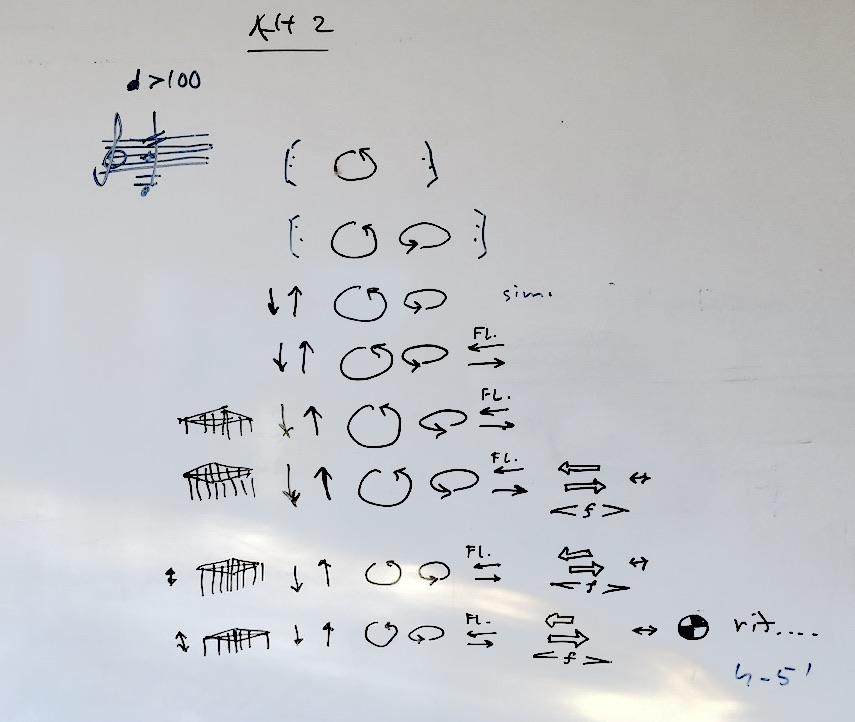 Alt 2
♩ >100
sim.
FL.
FL.
FL.
< f >
FL.
< f >
FL.
< f >
rit....
4-5'